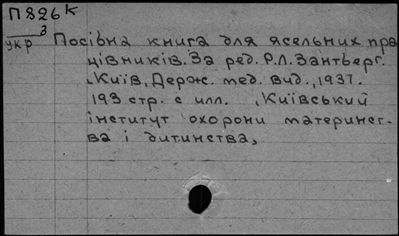 П826к
3
укр
Посівна книга для ясельних пра
цівників. За ред. Р.Л. Зантберг.
Київ, Держ. мед. вид., 1937.
193 стр. с илл. Київський
інститут охорони материнст-
ва і дитинства,